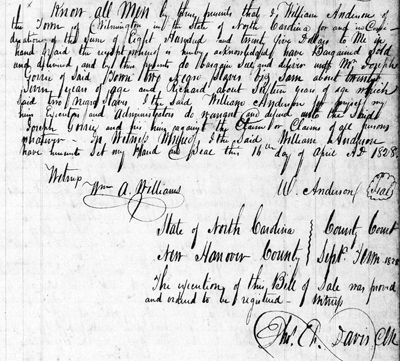 Know all Men by these presents that I, William Anderson of
the Town of Wilmington in the State of North Carolina for and in Consi
deration of the Sum of Eight Hundred and twenty five Dollars to me in
hand paid the receipt whereof is hereby acknowledged have Bargained Sold
and delivered, and by these presents do bargain Sell and deliver unto Mr. Joseph
of Said Town two Negro Slaves viz Sam about twenty
Seven years of age and Richard about Sixteen years of age which
said two Negro Slaves I the said William Anderson for myself my
heirs Executors and Administrators do warrant and defend unto the Said
Joseph his heirs against the Claim or Claims of all persons
whatever - In Witness Whereof, I the Said William Anderson
have hereunto Set my Hand and Seal this 16th day of April A.D. 1828.
Witness
Wm A. Williams W. Anderson (Seal)
State of North Carolina } County Court
New Hanover County } Sept. Term 1828
The execution of this Bill of Sale was proved
and ordered to be registered - Witness
Davis Clk